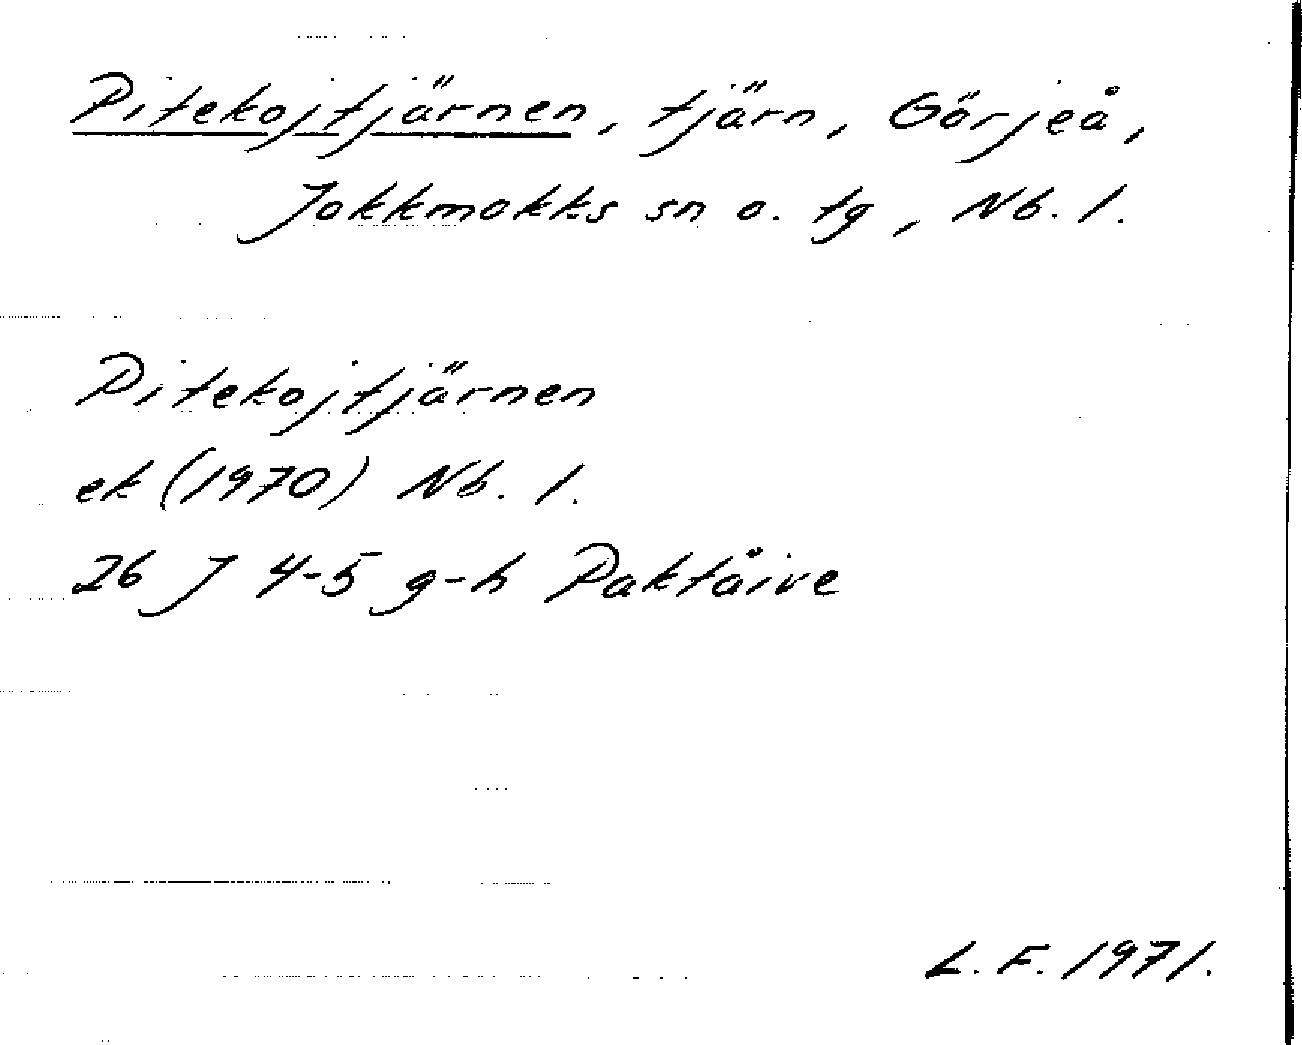 Pitekojtjärnen, tjärn, Görjeå,
Jokkmokks sn o. tg, Nb. l.
Pitekojtjärnen
ek (1970) Nb. l.
26 J 4-5 g-h Paktåive
L. F. 1971.